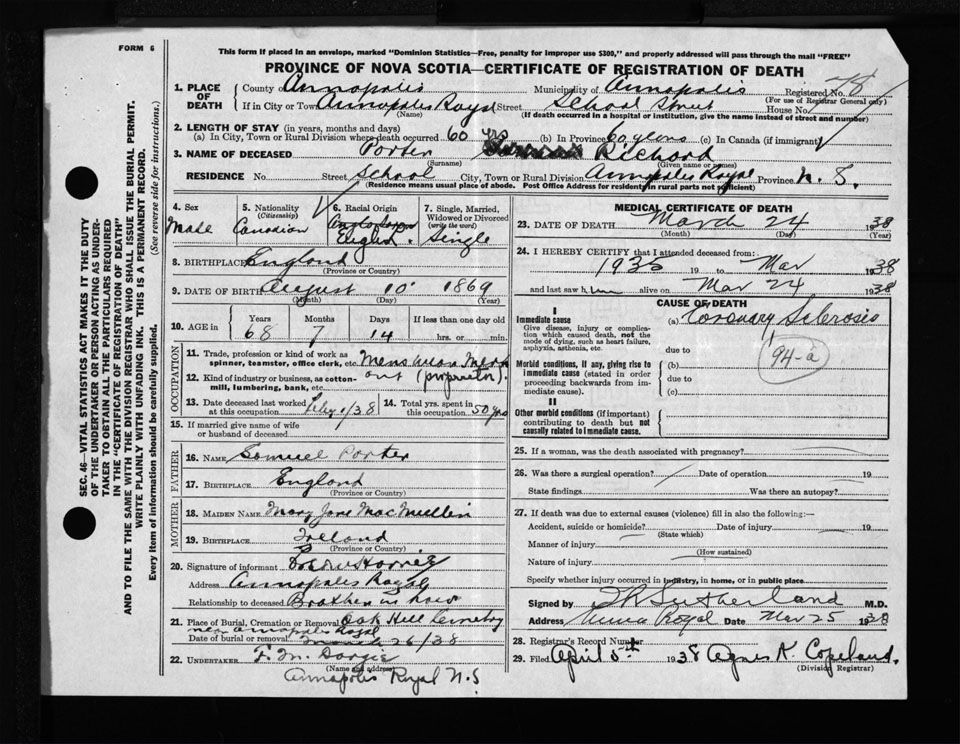 FORM 6
This form if placed in an envelope, marked "Dominion Statistics—Free, penalty for improper use $300," and properly addressed will pass through the mail "FREE"
PROVINCE OF NOVA SCOTIA—CERTIFICATE OF REGISTRATION OF DEATH
1. PLACE OF DEATH
County of Annapolis Municipality of Annapolis Registered No. 78
(For use of Registrar General only)
If in City or Town Annapolis Royal Street School Street House No.
(Name) (If death occurred in a hospital or institution, give the name instead of street and number)
2. LENGTH OF STAY (in years, months and days)
(a) In City, Town or Rural Division where death occurred 60 yrs (b) In Province 60 years (c) In Canada (if immigrant)
3. NAME OF DECEASED Porter Richard
(Surname) (Given name or names)
RESIDENCE No. Street School City, Town or Rural Division Annapolis Royal Province N. S.
(Residence means usual place of abode. Post Office Address for residents in rural parts not sufficient)
SEC. 46—VITAL STATISTICS ACT MAKES IT THE DUTY
OF THE UNDERTAKER OR PERSON ACTING AS UNDER-
TAKER TO OBTAIN ALL THE PARTICULARS REQUIRED
IN THE "CERTIFICATE OF REGISTRATION OF DEATH"
AND TO FILE THE SAME WITH THE DIVISION REGISTRAR WHO SHALL ISSUE THE BURIAL PERMIT.
WRITE PLAINLY WITH UNFADING INK. THIS IS A PERMANENT RECORD.
Every item of information should be carefully supplied. (See reverse side for instructions.)
4. Sex
Male
5. Nationality
(Citizenship)
Canadian
6. Racial Origin
English.
7. Single, Married,
Widowed or Divorced
(write the word)
Single
8. BIRTHPLACE England
(Province or Country)
9. DATE OF BIRTH August 10 1869
(Month) (Day) (Year)
10. AGE in
Years Months Days If less than one day old
68 7 14 hrs. or min.
OCCUPATION
11. Trade, profession or kind of work as
spinner, teamster, office clerk, etc. Mens wear Merch
12. Kind of industry or business, as cotton-
mill, lumbering, bank, etc. ant (proprietor).
13. Date deceased last worked
at this occupation Feby 1/38
14. Total yrs. spent in
this occupation 50 yrs
15. If married give name of wife
or husband of deceased
FATHER
16. NAME Samuel Porter
17. BIRTHPLACE England
(Province or Country)
MOTHER
18. MAIDEN NAME Mary Jane MacMullin
19. BIRTHPLACE Ireland
(Province or Country)
20. Signature of informant
Address Annapolis Royal
Relationship to deceased Brother in law
21. Place of Burial, Cremation or Removal Oak Hill Cemetery
near Annapolis Royal
Date of burial or removal March 26/38
22. UNDERTAKER F. M. Dargie
(Name and address)
Annapolis Royal N.S
MEDICAL CERTIFICATE OF DEATH
23. DATE OF DEATH March 24 1938
(Month) (Day) (Year)
24. I HEREBY CERTIFY that I attended deceased from:
1935 19 to Mar 1938
and last saw him alive on Mar 24 1938
CAUSE OF DEATH
I
Immediate cause
Give disease, injury or complica-
tion which caused death, not the
mode of dying, such as heart failure,
asphyxia, asthenia, etc.
(a) Coronary Sclerosis
94-a
due to
Morbid conditions, if any, giving rise to
immediate cause (stated in order
proceeding backwards from im-
mediate cause).
(b)
due to
(c)
II
Other morbid conditions (if important)
contributing to death but not
causally related to immediate cause.
25. If a woman, was the death associated with pregnancy?
26. Was there a surgical operation? Date of operation 19
State findings Was there an autopsy?
27. If death was due to external causes (violence) fill in also the following:—
Accident, suicide or homicide? Date of injury 19
(State which)
Manner of injury
(How sustained)
Nature of injury
Specify whether injury occurred in industry, in home, or in public place
Signed by Sutherland M.D.
Address Anna Royal Date Mar 25 1938
28. Registrar's Record Number
29. Filed April 5th 1938 Agnes K. Copeland.
(Division Registrar)